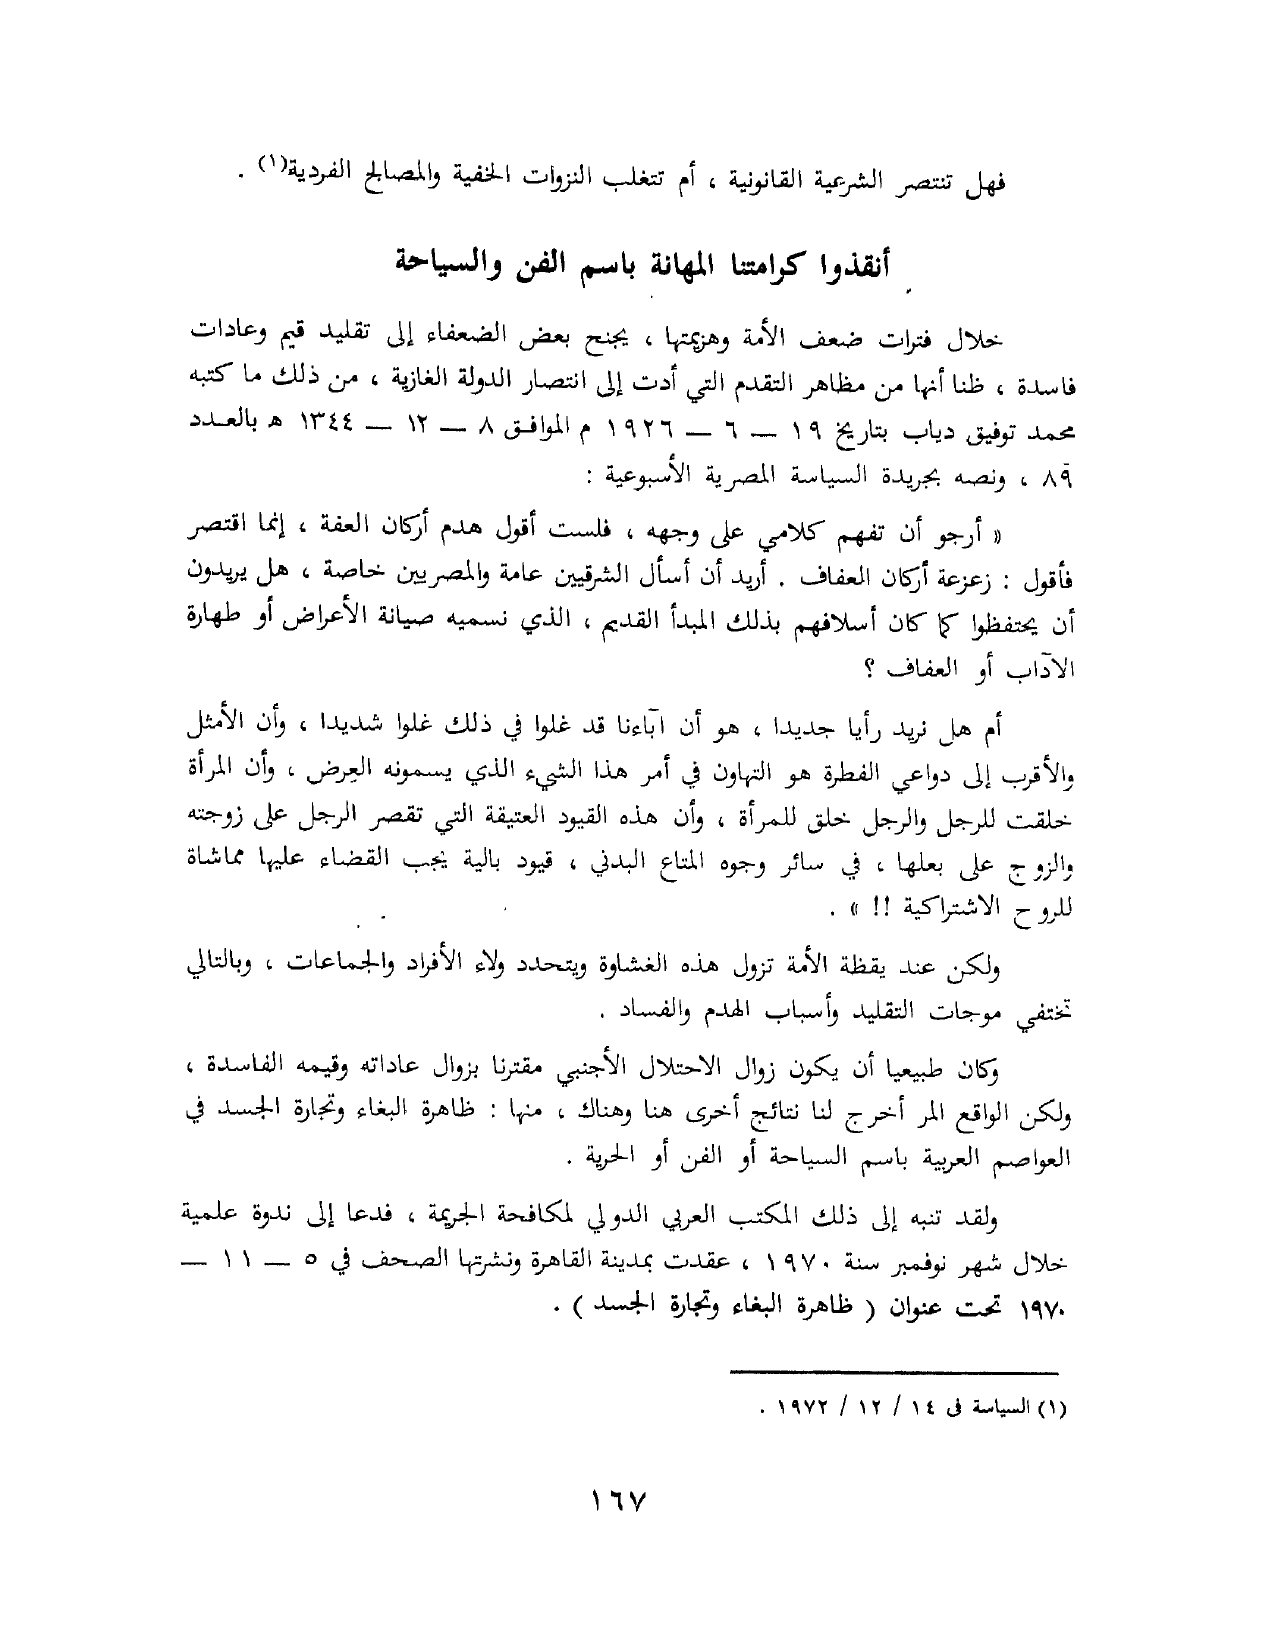 فهل تنتصر الشرعية القانونية ، أم تتغلب النزوات الخفية والمصالح الفردية(١) .
أنقذوا كرامتنا المهانة باسم الفن والسياحة
خلال فترات ضعف الأمة وهزيمتها ، يجنح بعض الضعفاء إلى تقليد قيم وعادات
فاسدة ، ظنا أنها من مظاهر التقدم التي أدت إلى انتصار الدولة الغازية ، من ذلك ما كتبه
محمد توفيق دياب بتاريخ ١٩ — ٦ — ١٩٢٦ م الموافق ٨ — ١٢ — ١٣٤٤ هـ بالعدد
٨٩ ، ونصه بجريدة السياسة المصرية الأسبوعية :
« أرجو أن تفهم كلامي على وجهه ، فلست أقول هدم أركان العفة ، إنما اقتصر
فأقول : زعزعة أركان العفاف . أريد أن أسأل الشرقيين عامة والمصريين خاصة ، هل يريدون
أن يحتفظوا كما كان أسلافهم بذلك المبدأ القديم ، الذي نسميه صيانة الأعراض أو طهارة
الآداب أو العفاف ؟
أم هل نريد رأيا جديدا ، هو أن آباءنا قد غلوا في ذلك غلوا شديدا ، وأن الأمثل
والأقرب إلى دواعي الفطرة هو التهاون في أمر هذا الشيء الذي يسمونه العِرض ، وأن المرأة
خلقت للرجل والرجل خلق للمرأة ، وأن هذه القيود العتيقة التي تقصر الرجل على زوجته
والزوج على بعلها ، في سائر وجوه المتاع البدني ، قيود بالية يجب القضاء عليها مماشاة
للروح الاشتراكية !! » .
ولكن عند يقظة الأمة تزول هذه الغشاوة ويتحدد ولاء الأفراد والجماعات ، وبالتالي
تختفي موجات التقليد وأسباب الهدم والفساد .
وكان طبيعيا أن يكون زوال الاحتلال الأجنبي مقترنا بزوال عاداته وقيمه الفاسدة ،
ولكن الواقع المر أخرج لنا نتائج أخرى هنا وهناك ، منها : ظاهرة البغاء وتجارة الجسد في
العواصم العربية باسم السياحة أو الفن أو الحرية .
ولقد تنبه إلى ذلك المكتب العربي الدولي لمكافحة الجريمة ، فدعا إلى ندوة علمية
خلال شهر نوفمبر سنة ١٩٧٠ ، عقدت بمدينة القاهرة ونشرتها الصحف في ٥ — ١١ —
١٩٧٠ تحت عنوان ( ظاهرة البغاء وتجارة الجسد ) .
(١) السياسة فى ١٤ / ١٢ / ١٩٧٢ .
١٦٧